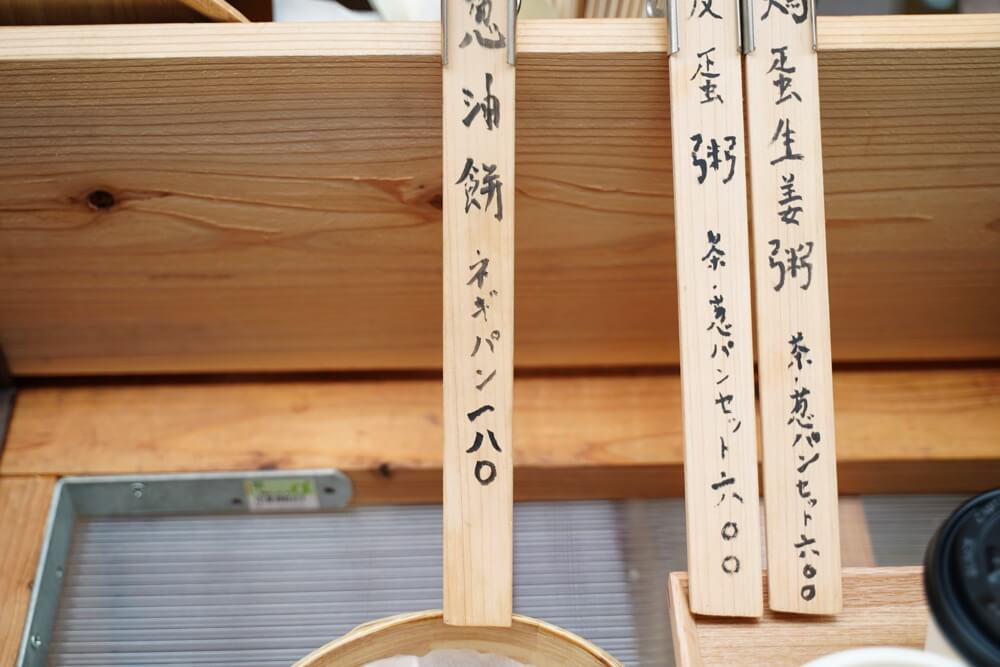 蛋生姜粥 茶・葱パンセット六〇〇
皮蛋粥 茶・葱パンセット六〇〇
葱油餅 ネギパン一八〇